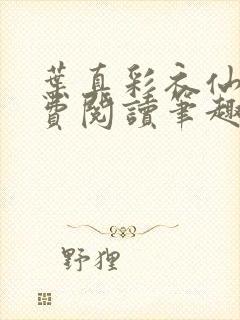 葉真彩衣仙
費閱讀筆趣
野狸